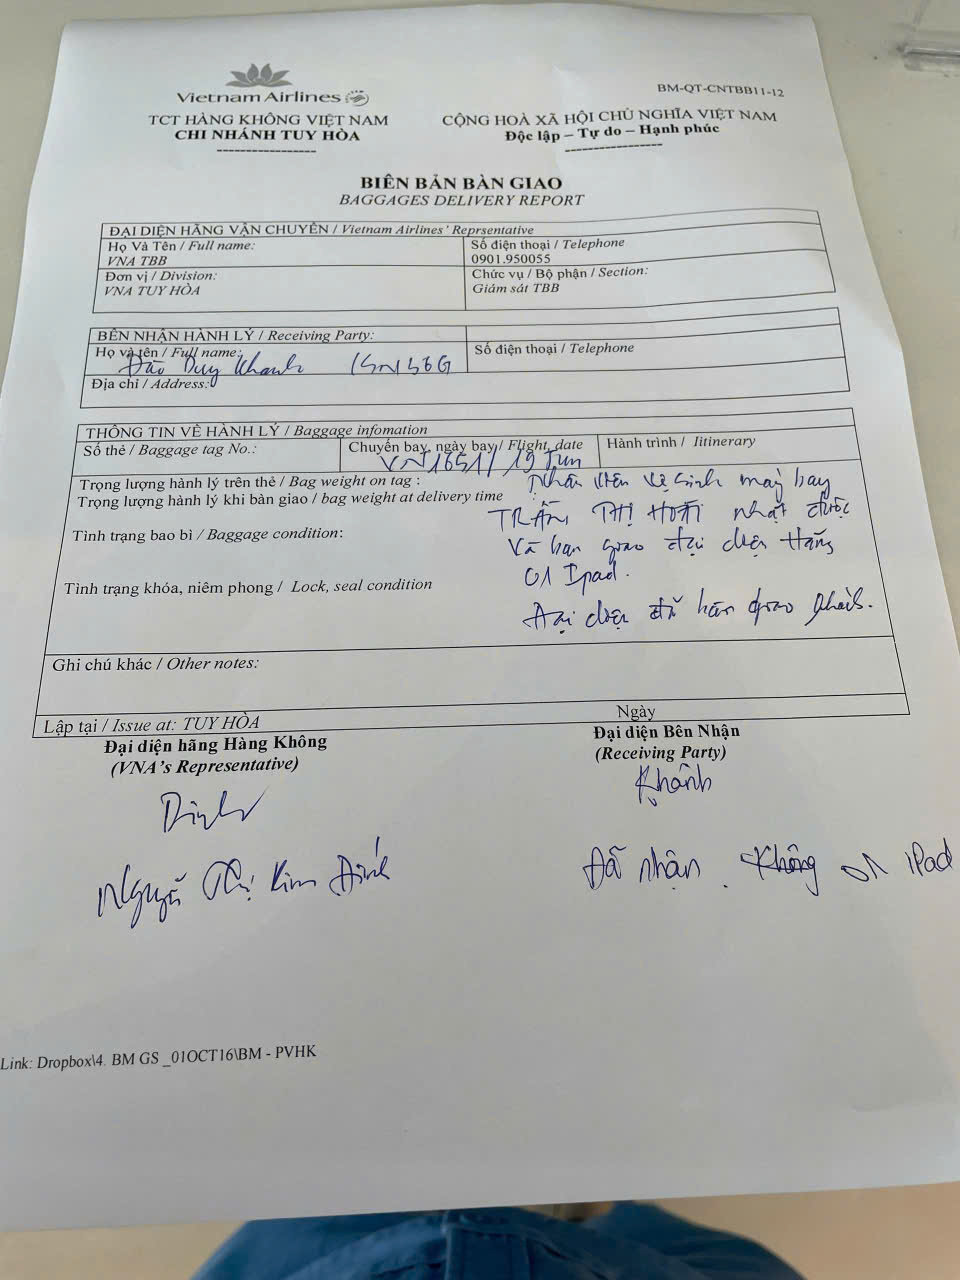 Vietnam Airlines
BM-QT-CNTBB11-12
TCT HÀNG KHÔNG VIỆT NAM
CHI NHÁNH TUY HÒA
CỘNG HOÀ XÃ HỘI CHỦ NGHĨA VIỆT NAM
Độc lập – Tự do – Hạnh phúc
BIÊN BẢN BÀN GIAO
BAGGAGES DELIVERY REPORT
ĐẠI DIỆN HÃNG VẬN CHUYỂN / Vietnam Airlines' Reprsentative
Họ Và Tên / Full name:
VNA TBB
Số điện thoại / Telephone
0901.950055
Đơn vị / Division:
VNA TUY HÒA
Chức vụ / Bộ phận / Section:
Giám sát TBB
BÊN NHẬN HÀNH LÝ / Receiving Party:
Họ và tên / Full name:
Đào Duy Khanh
Số điện thoại / Telephone
Địa chỉ / Address:
THÔNG TIN VỀ HÀNH LÝ / Baggage infomation
Số thẻ / Baggage tag No.:
Chuyến bay, ngày bay / Flight, date
VN1651 / 19 Jun
Hành trình / Iitinerary
Trọng lượng hành lý trên thẻ / Bag weight on tag :
Trọng lượng hành lý khi bàn giao / bag weight at delivery time :
Tình trạng bao bì / Baggage condition:
Tình trạng khóa, niêm phong / Lock, seal condition
Nhân viên vệ sinh máy bay
TRẦN THỊ HOÀI nhặt được
và bàn giao đại diện Hãng
01 Ipad.
Đại diện đã bàn giao khách.
Ghi chú khác / Other notes:
Lập tại / Issue at: TUY HÒA
Ngày
Đại diện hãng Hàng Không
(VNA's Representative)
Đại diện Bên Nhận
(Receiving Party)
Khánh
Nguyễn Thị Kim Đính
Đã nhận. Không 01 iPad
Link: Dropbox\4. BM GS _01OCT16\BM - PVHK